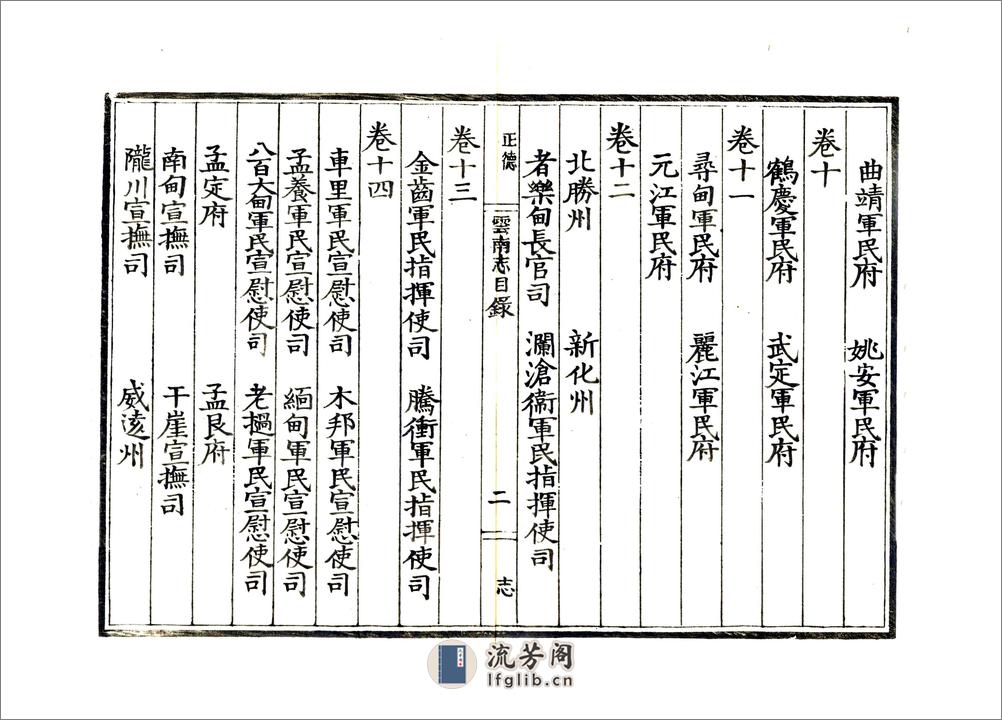 曲靖軍民府 姚安軍民府
卷十
鶴慶軍民府 武定軍民府
卷十一
尋甸軍民府 麗江軍民府
元江軍民府
卷十二
北勝州 新化州
者樂甸長官司 瀾滄衞軍民指揮使司
正德 雲南志目錄 二 志
卷十三
金齒軍民指揮使司 騰衝軍民指揮使司
卷十四
車里軍民宣慰使司 木邦軍民宣慰使司
孟養軍民宣慰使司 緬甸軍民宣慰使司
八百大甸軍民宣慰使司 老撾軍民宣慰使司
孟定府 孟艮府
南甸宣撫司 干崖宣撫司
隴川宣撫司 威遠州
流芳阁
lfglib.cn